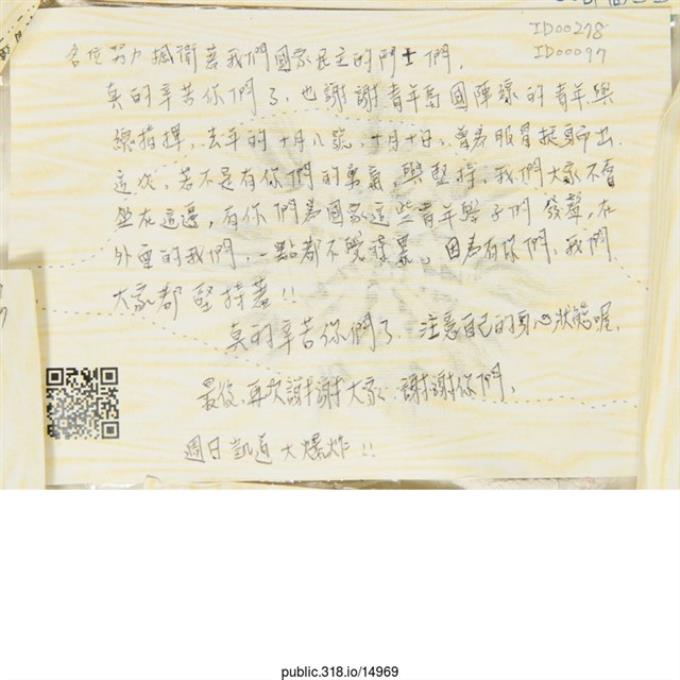 ID00278
ID00097
各位努力捍衛著我們國家民主的鬥士們,
真的辛苦你們了,也謝謝青年為國陣線的青年與
總指揮,去年的十月八號,十月十日,曾為服貿挺身而出.
這次,若不是有你們的勇氣,與堅持,我們大家不會
坐在這邊,有你們為國家這些青年學子們發聲,在
外面的我們,一點都不覺得累。因為有你們,我們
大家都堅持著!!
真的辛苦你們了,注意自己的身心狀態喔,
最後,再次謝謝大家,謝謝你們,
週日凱道大爆炸!!
public.318.io/14969